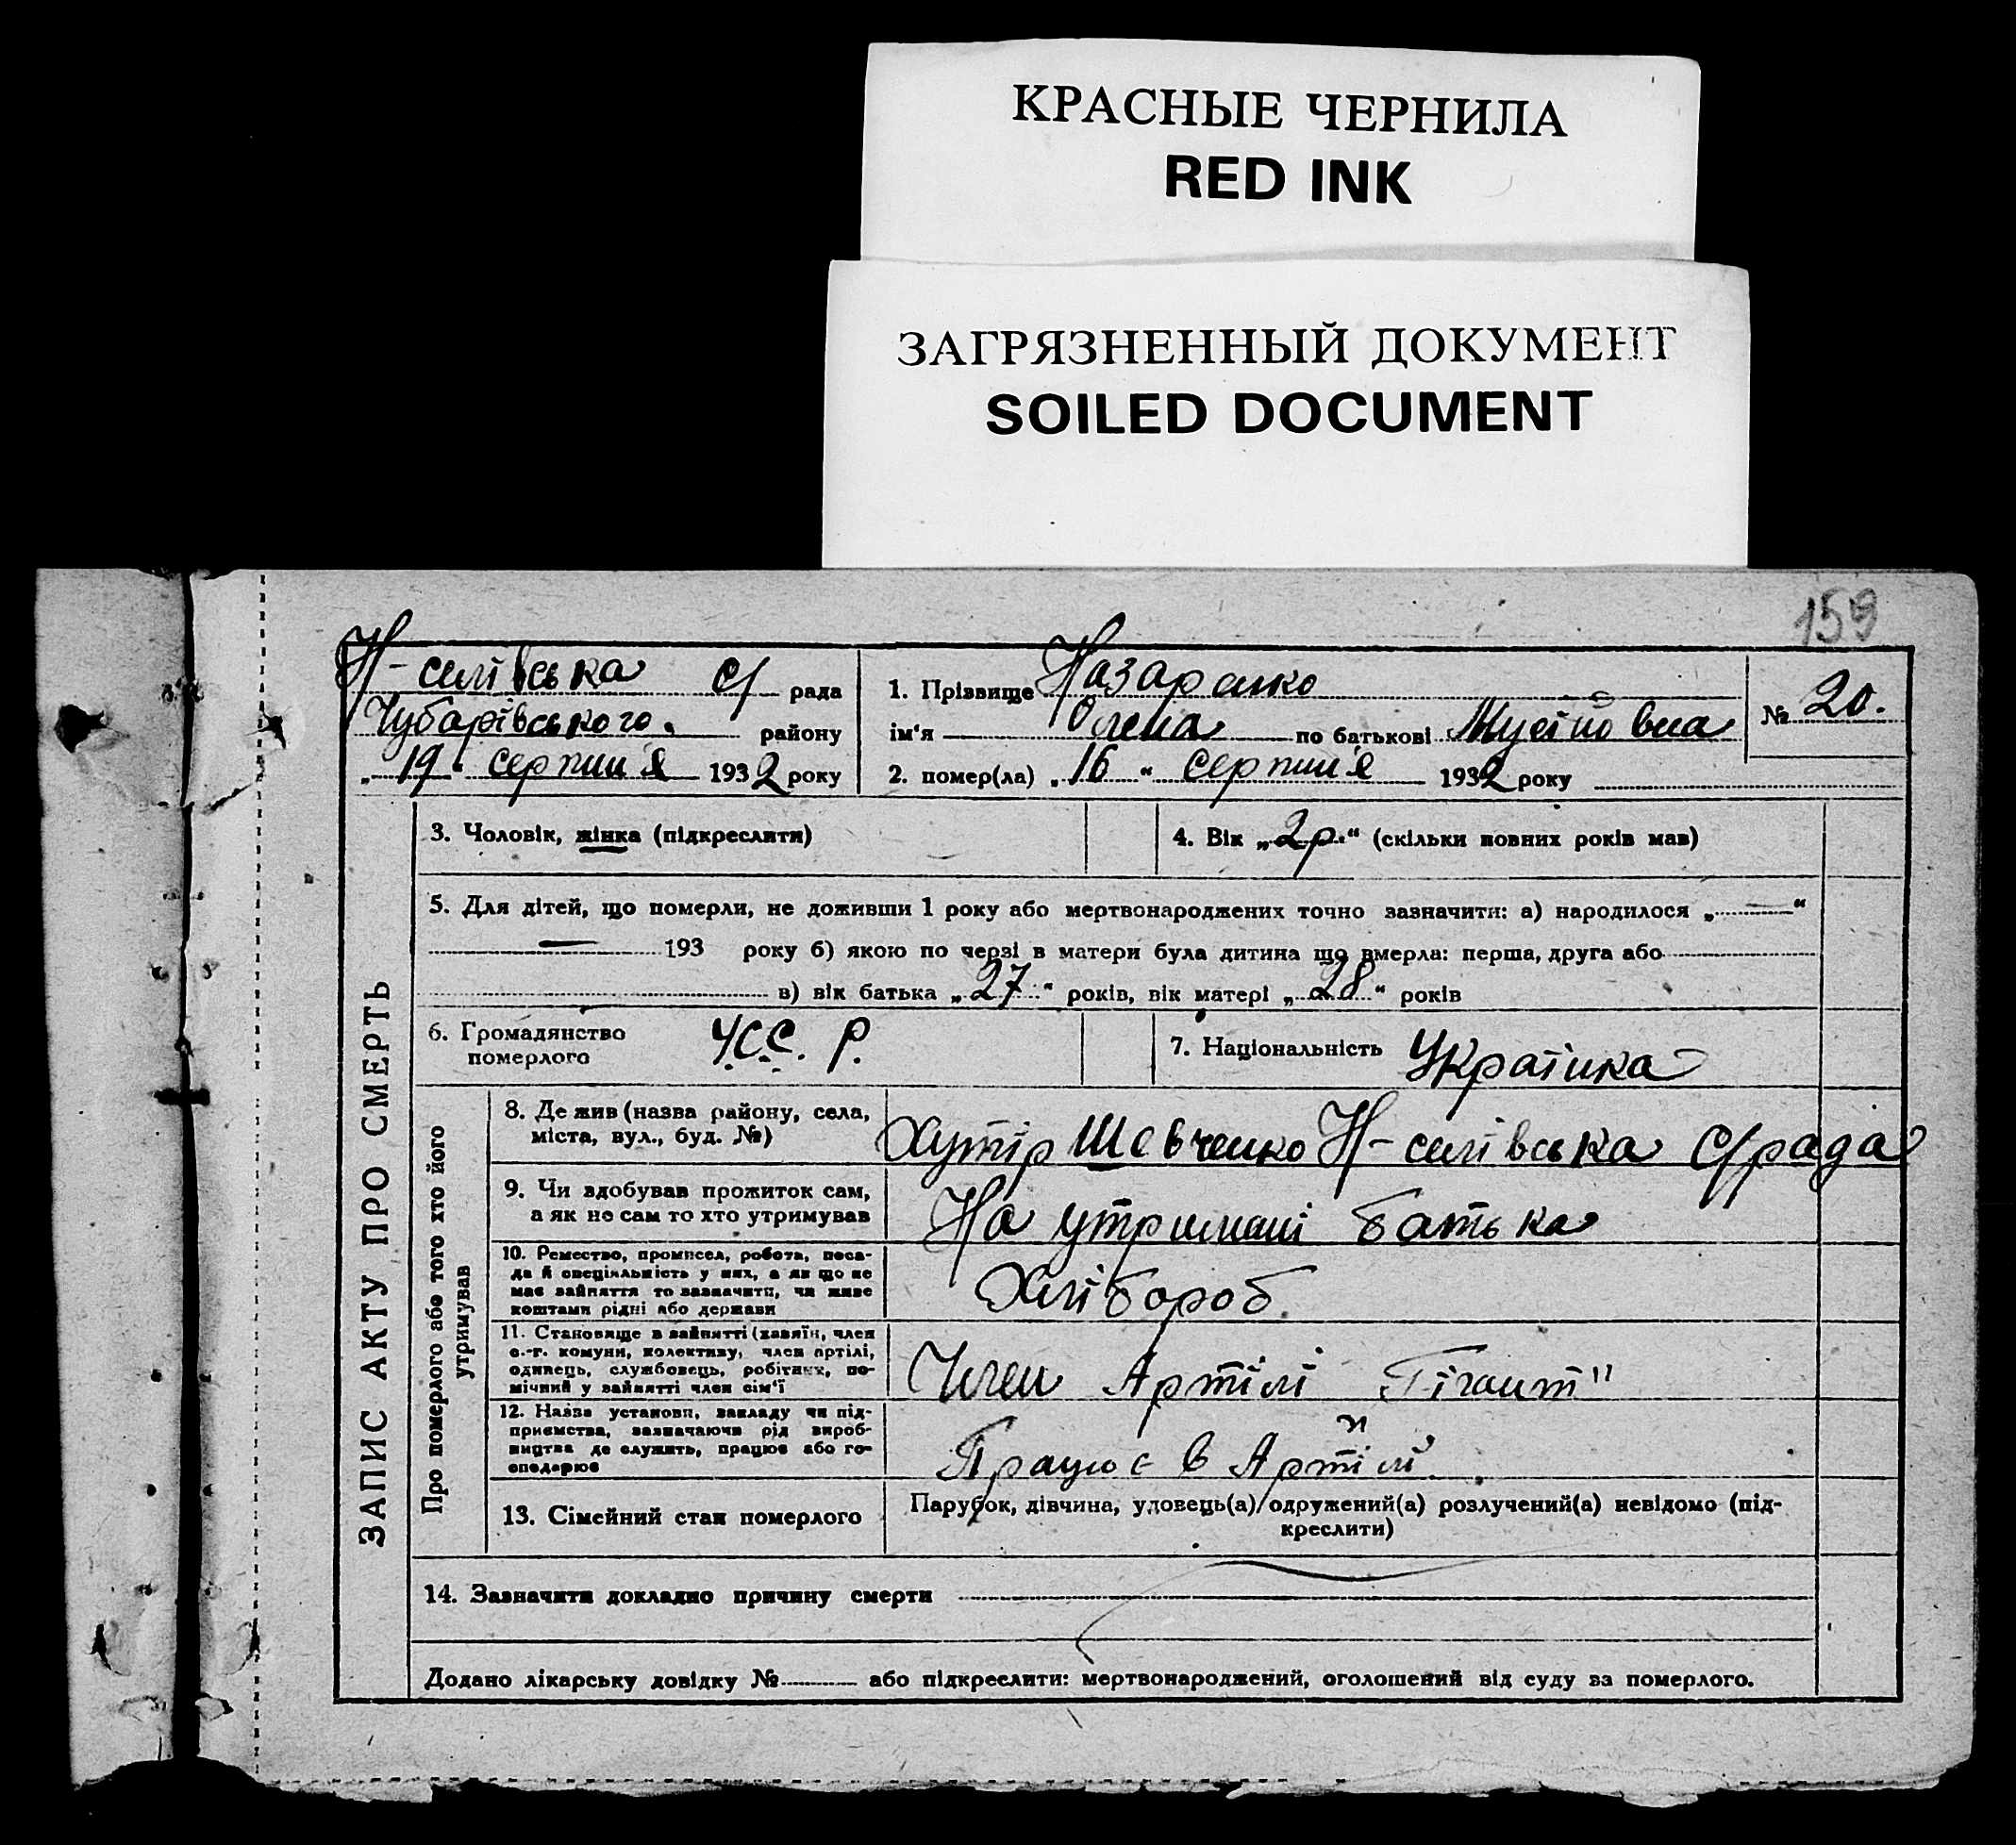 КРАСНЫЕ ЧЕРНИЛА
RED INK
ЗАГРЯЗНЕННЫЙ ДОКУМЕНТ
SOILED DOCUMENT
159
Н-селівська С/ рада
Чубарівського району
„19“ серпня 1932 року
1. Прізвище Назаренко
ім'я Олена по батькові Мусіївна
2. помер(ла) „16“ серпня 1932 року
№ 20.
ЗАПИС АКТУ ПРО СМЕРТЬ
3. Чоловік, жінка (підкреслити)
4. Вік „2р.“ (скільки повних років мав)
5. Для дітей, що померли, не доживши 1 року або мертвонароджених точно зазначити: а) народилося „—“
— 193 року б) якою по черзі в матери була дитина що вмерла: перша, друга або
в) вік батька „27“ років, вік матері „28“ років
6. Громадянство померлого У.С.С.Р.
7. Національність Українка
Про померлого або того хто його утримував
8. Де жив (назва району, села,
міста, вул., буд. №)
Хутір Шевченко Н-селівська С/рада
9. Чи здобував прожиток сам,
а як не сам то хто утримував
На утримані батька
10. Ремество, промисел, робота, поса-
да й спеціяльність у них, а як що не
має зайняття то зазначити, чи живе
коштами рідні або держави
Хлібороб.
11. Становище в зайнятті (хазяїн, член
с.-г. комуни, колективу, член артілі,
одинець, службовець, робітник, по-
мічний у зайнятті член сім'ї
Член Артілі Гігант"
12. Назва установи, закладу чи під-
приємства, зазначаючи рід вироб-
ництва де служить, працює або го-
сподарює
Працює в Артілі
13. Сімейний стан померлого
Парубок, дівчина, удовець(а) одружений(а) розлучений(а) невідомо (під-
креслити)
14. Зазначити докладно причину смерти
Додано лікарську довідку № або підкреслити: мертвонароджений, оголошений від суду за померлого.